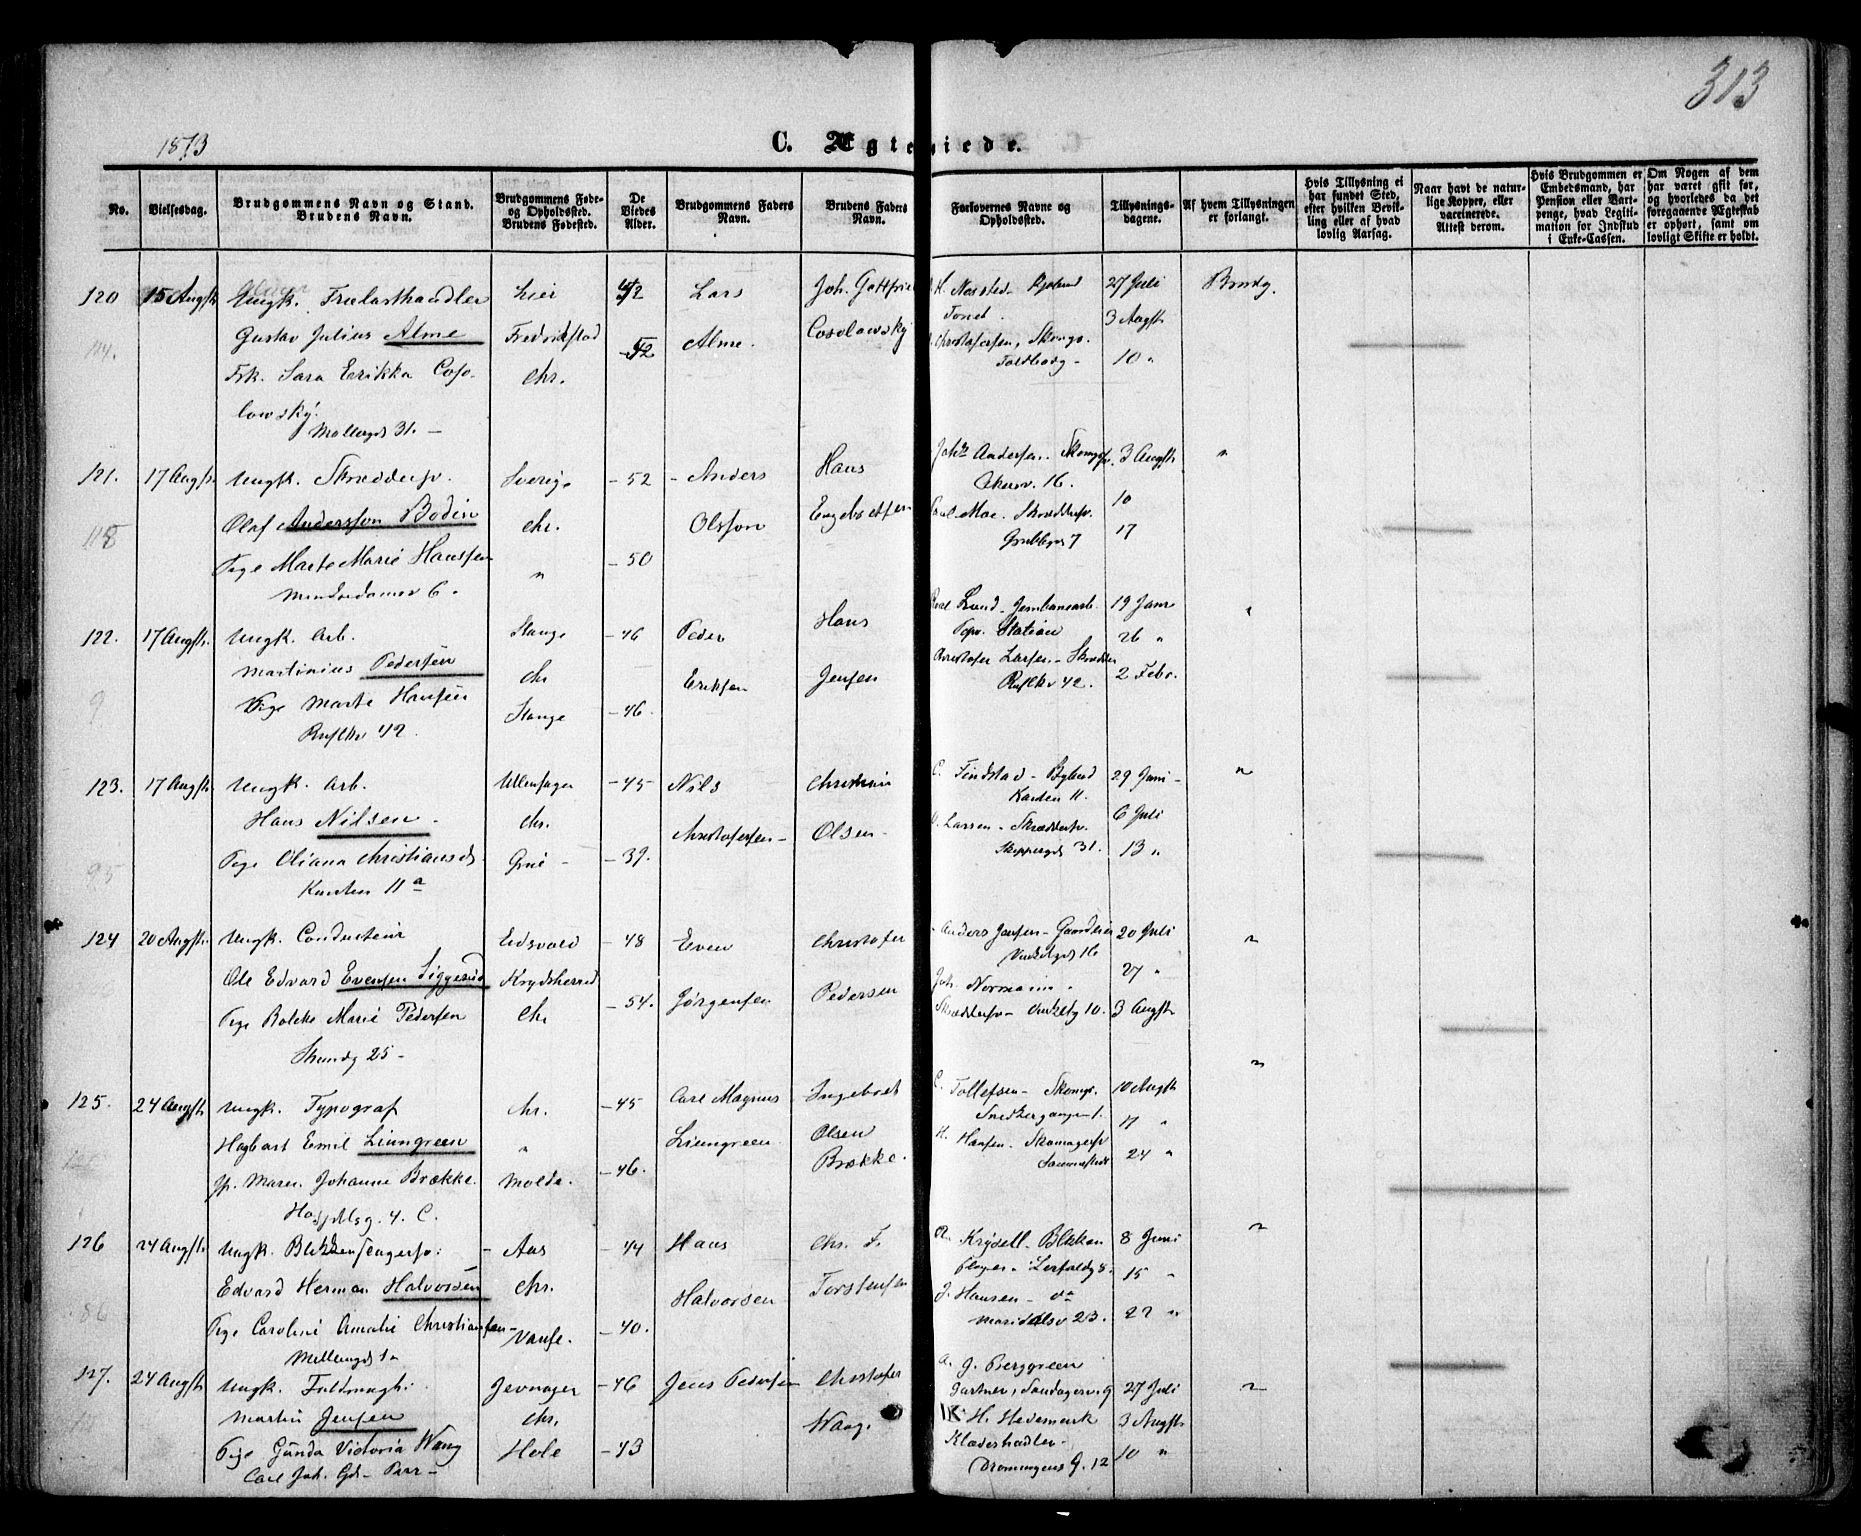 313
1873
C. Ægteviede.
No.
Vielsesdag.
Brudgommens Navn og Stand.
Brudens Navn.
Brudgommens Føde-
og Opholdssted.
Brudens Fødested.
De
Viedes
Alder.
Brudgommens Faders
Navn.
Brudens Faders
Navn.
Forlovernes Navne og
Opholdssted.
Tillysnings-
dagene.
Af hvem Tillysningen
er forlangt.
Hvis Tillysning ei
har fundet Sted,
efter hvilken Bevil-
ling eller af hvad
lovlig Aarsag.
Naar havt de natur-
lige Kopper, eller
vaccinerede.
Attest derom.
Hvis Brudgommen er
Embedsmand, har
Pension eller Vart-
penge, hvad Legiti-
mation for Indskud
i Enke-Cassen.
Om Nogen af dem
har været gift før,
og hvorledes da det
foregaaende Ægteskab
er ophørt, samt om
lovligt Skifte er holdt.
120 15 Augst Ungk. Trælasthandler Lier 42 Lars Joh. Gottfried 27 Juli Brudg.
Gustav Julius Alme Fredrikstad Alme. Cosolowsky 3 Augst
Frk. Sara Erikka Coso- Chr. 42 10 "
lowsky.
Mollergd 31. –
121. 17 Augst. Ungk. Skræddersv. Sverige – 52 Anders Hans Johs Andersen. 3 Augst "
Olaf Andersson Bodin Chr. Olsson Engebretsen Akersv. 16. 10
118 Pige Marte Marie Hanssen " – 50 Moe. Skræddersv. 17
Munkedamsv 6. Grubbegd 7
122. 17 Augst. Ungk. Arb. Stange – 46 Peder Hans Lund – Jernbanearb. 19 Janr "
Martinius Pedersen Chr Eriksen Jensen Station 26 "
9 Pige Marte Hansen Stange – 46. Christofer Larsen – Skrædder 2 Febr.
Rusl.kv 42. Rusl.kv 42.
123. 17 Augst Ungk. Arb. Ullensager – 45 – Nils Christian C. Findstad – 29 Juni – "
Hans Nilsen – Chr. Christofersen – Olsen – Kanten 11. 6 Juli
95 Pige Oliana Christiansd. Grue – – 39. Larsen – Skræddersv. 13 "
Kanten 11a Skippergd 31.
124 20 Augst. Ungk. Conducteur Eidsvold – 48 Even Christofer Anders Jensen – Gaardeier 20 Juli "
Ole Edvard Evensen Siggerud Krydsherred Jørgensen Pedersen Vinkelgd 16 27 "
Pige Bolette Marie Pedersen Chr – 54. Joh. Normann. 3 Augst
Strandg 25 – Skræddersv – Vinkelg 10.
125. 24 Augst Ungk. Typograf Chr. – 45 Carl Magnus Ingebret C. Tollefsen – Skomgr. 10 Augst "
Hagbart Emil Liungreen " Liungreen Olsen Snedkergangen 1. 17 "
Jfr. Maren Johanne Brække. Molde. – 46. Brække. H. Hansen. Skomagersv 24 "
Hospitalsg. 4. C.
126 24 Augst Ungk. Blikkenslagersv. Aas – 44 Hans Chr. F. A. Krysell – Blikken 8 Juni "
Edvard Herman Halvorsen Chr. Halvorsen Torstensen slager – Lerfaldg 8. 15 "
86 Pige Caroline Amalie Christiansen – Vanse. – 40. J. Hansen – do 22 "
Møllergd 1a Maridalsv 23.
127. 24 Augst Ungk. Fuldmægt. Jevnager – 46 Jens Pedersen Christofer A. J. Berggreen 27 Juli "
Martin Jensen Chr. Waag. Gartner, Sandagervig 3 Augst
Pige Gunda Victoria Waag Hole – 43 H. Hedemark 10 "
Carl Joh. Gd – Klædeshandler –
Dronningens G. 12